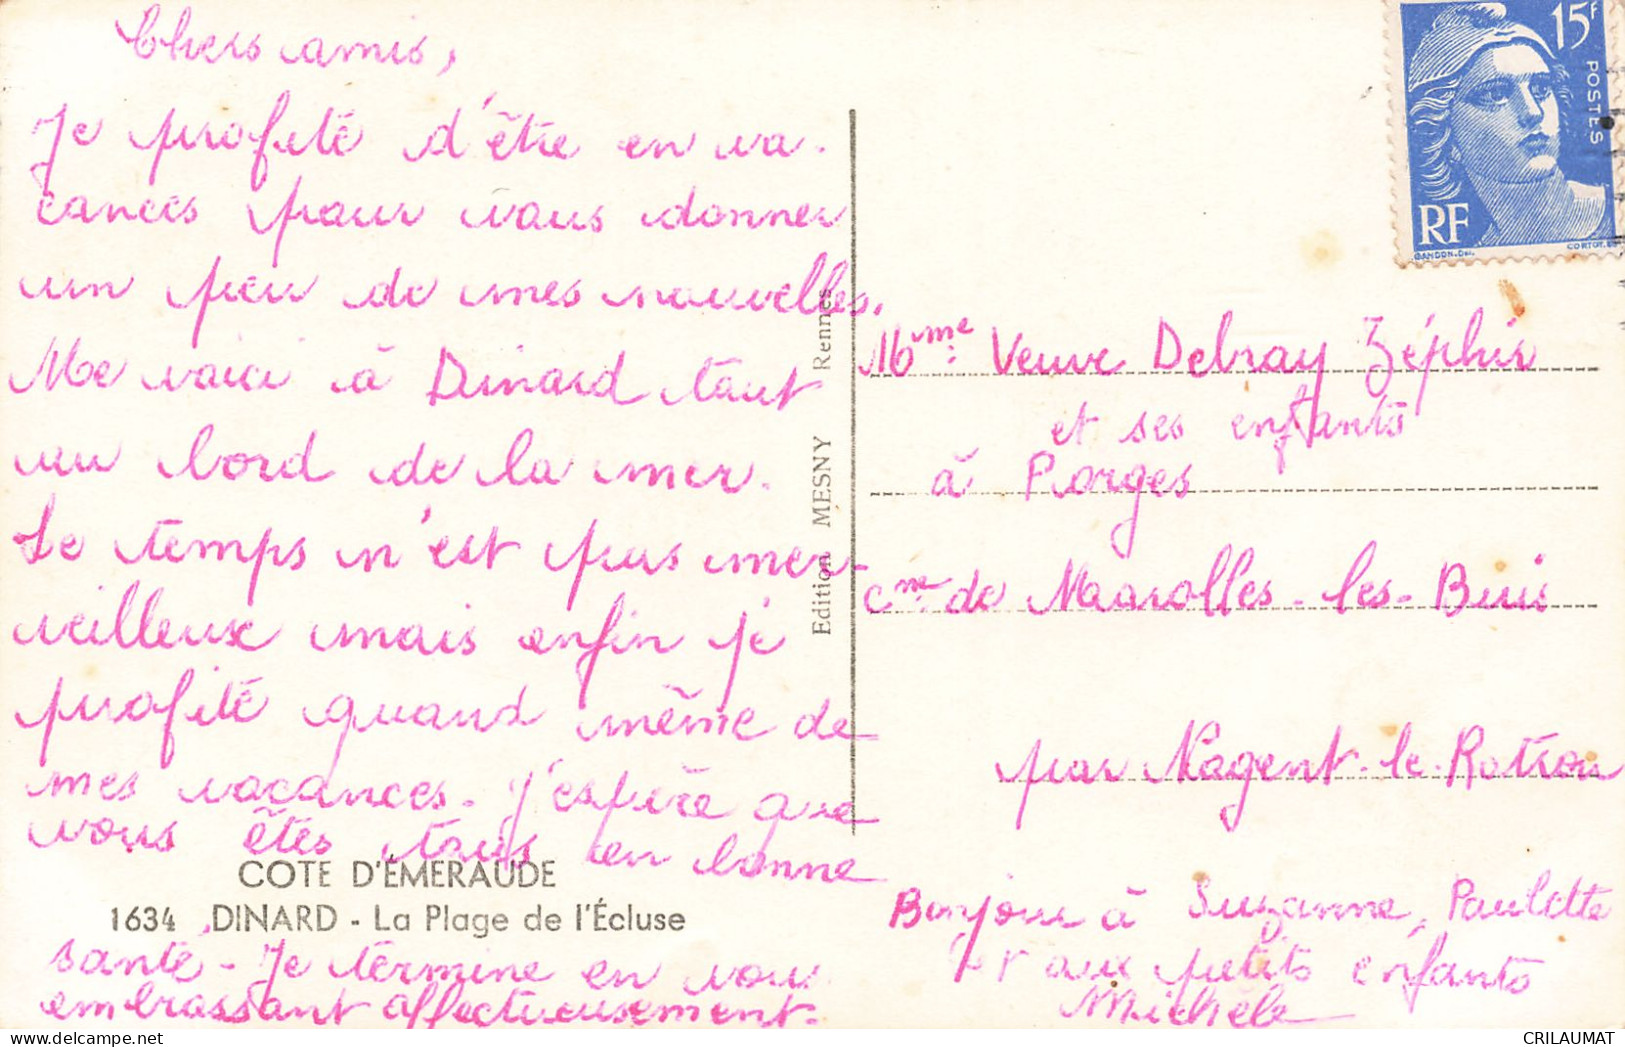 Chers amis,
Je profite d'être en va-
cances pour vous donner
un peu de mes nouvelles.
Me voici à Dinard tout
au bord de la mer.
Le temps n'est pas mer-
veilleux mais enfin je
profite quand même de
mes vacances. J'espère que
vous êtes tous en bonne
COTE D'ÉMERAUDE
1634 DINARD - La Plage de l'Écluse
santé - Je termine en vous
embrassant affectueusement.
Edition MESNY Rennes
15F
POSTES
RF
GANDON.DEL.
Mme Veuve Debray Zéphir
et ses enfants
à Porges
Cne de Marolles-les-Buis
par Nogent-le-Rotrou
Bonjour à Suzanne, Paulette
et aux petits enfants
Michèle
CRILAUMAT